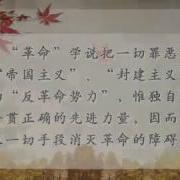 “革命”学说把一切罪恶
“帝国主义”、“封建主义
“反革命势力”，惟独自
贯正确的先进力量，因而
一切手段消灭革命的障碍